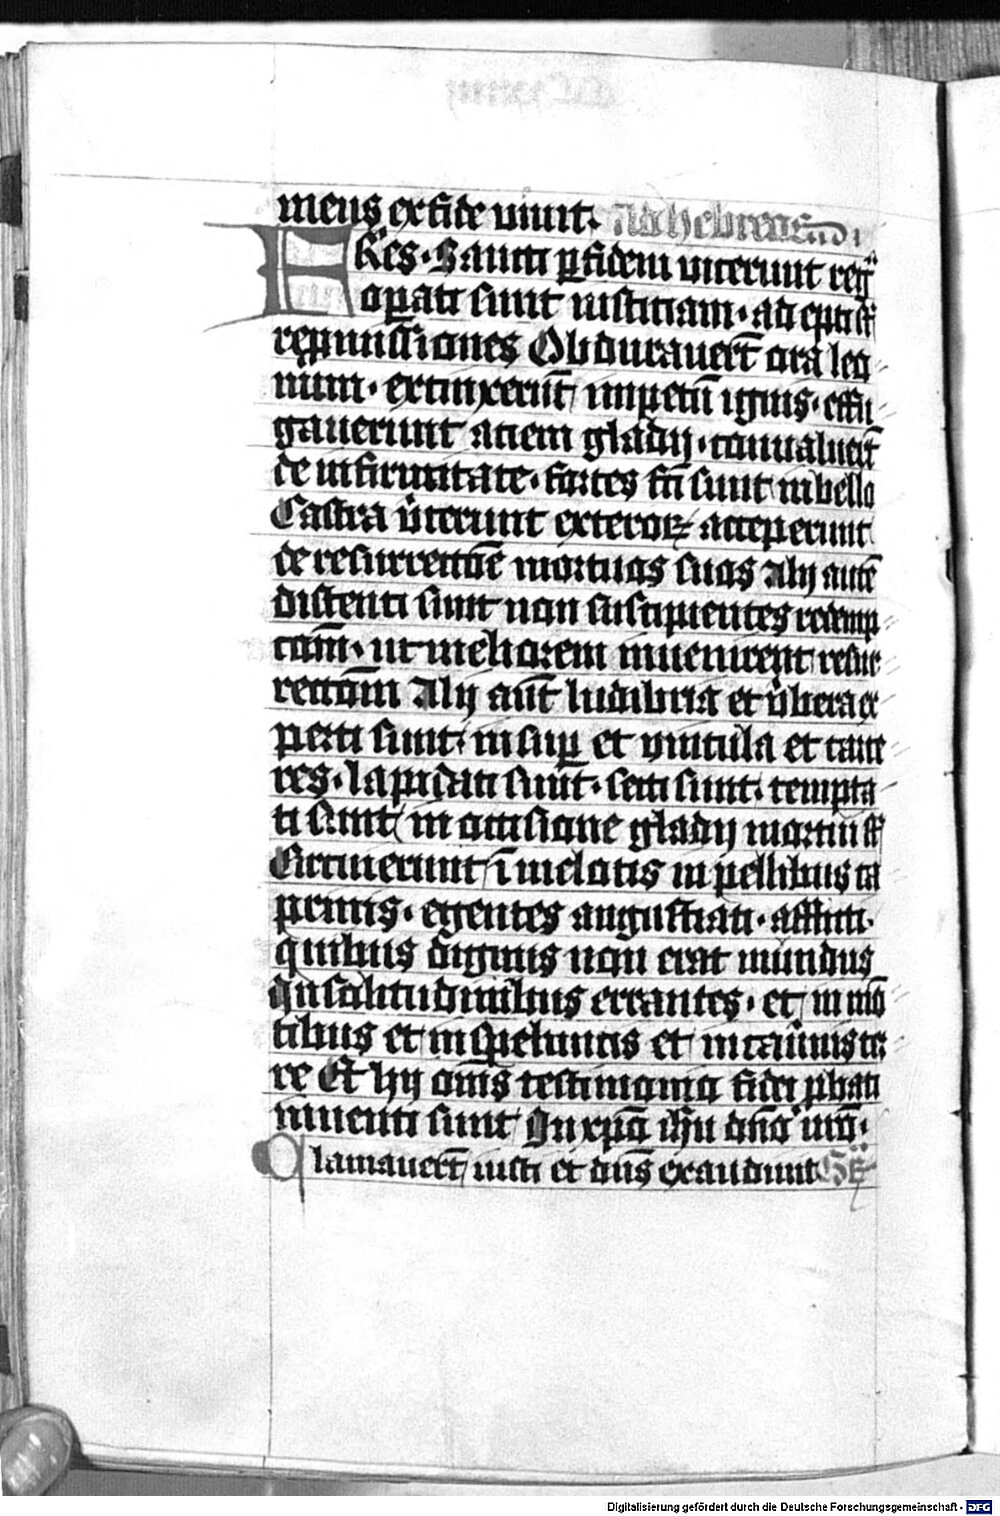 meus ex fide viuit. Ad hebreos
FRēs. Sancti ꝑ fidem vicerunt reg̅
oꝑati sunt iusticiam. ad epti sūt
reꝑmissiones Obdurauert̄ ora leo
num. extinxerūt impetū ignis. effu
gauerunt aciem gladij. conualuert̄
de infirmitate. fortes fc̄i sunt in bello
Castra v̓terunt exteroꝝ acceperunt
de resurrectōe mortuos suos Alij autē
distenti sunt non suscipientes redemp
cōm. ut meliorem inuenirent resur
rectōm Alij aūt ludibria et v̓bera ex
perti sunt. insuꝑ et vincula et carce
res. lapidati sunt. secti sunt. tempta
ti sunt in occisione gladij mortui sūt
Circuierunt ī melotis in pellibus ca
prinis. egentes angustiati. afflicti.
quibus dignus non erat mundus
In solitudinibus errantes. et in mō
tibus et in speluncis et in cau̓nis ter
re Et hij om̄s testimonio fidei ꝓbati
inuenti sunt In xpō ih̄u dn̄o nr̄o.
Clamauert̄ iusti et dn̄s exaudiuit
Digitalisierung gefördert durch die Deutsche Forschungsgemeinschaft - DFG